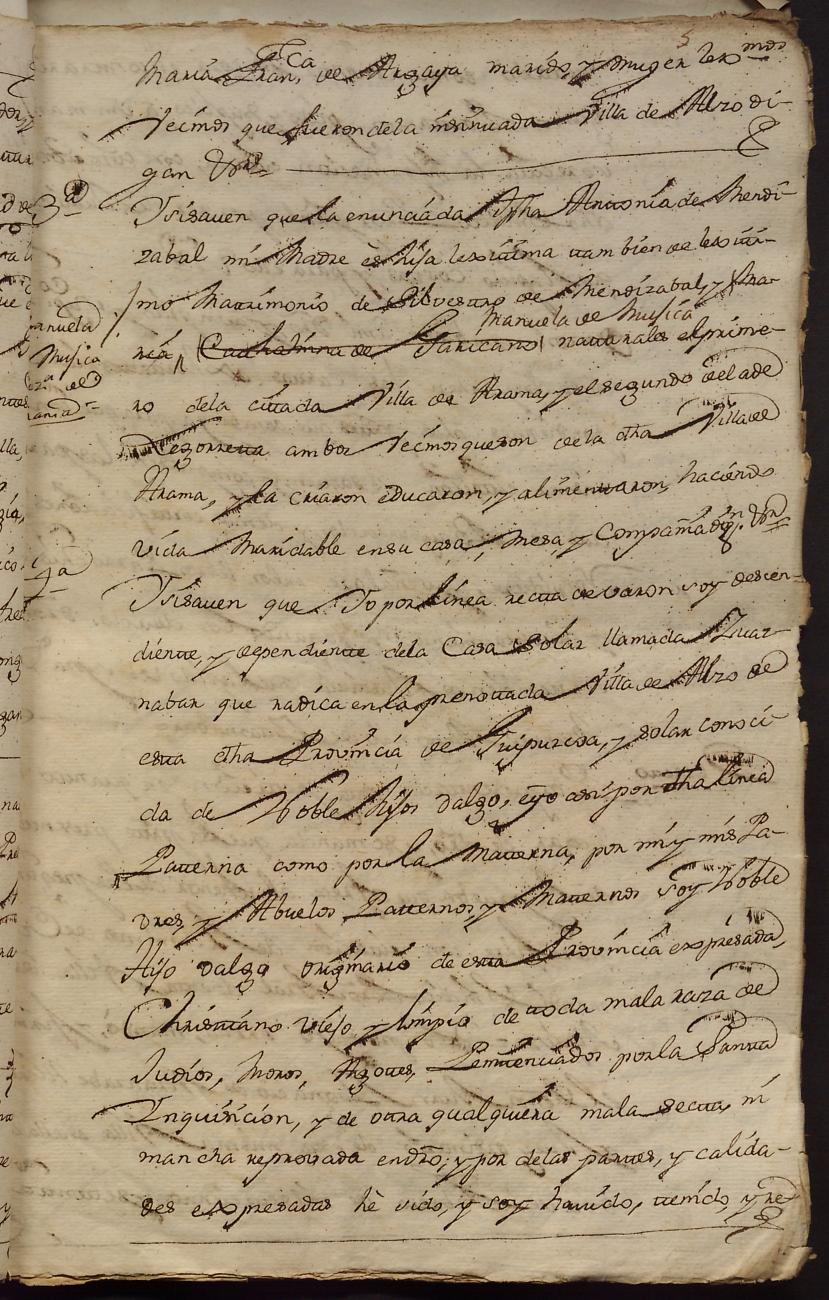 5
Maria Fran.ca de Argaya marido, y Muger lex.mos
Vecinos que fueron dela insinuada Villa de Alzo di-
gan &ra
3ª
Ysisauen que la enunciada Jpha Antonia de Mendi-
zabal mi Madre ès hija lexitima tambien de lexiti-
mo Matrimonio de Silvestre de Mendizabal, y Ma-
Manuela de Musica
ria, (Cathalina de Garicano) naturales el prime-
ro dela citada Villa de Arama, y el segundo dela de
Legorreta ambos Vecinos que son de la dha Villa de
Arama, y la criaron educaron, y alimentaron, haciendo
vida Maridable en su casa, Mesa, y Compañia &ra
4ª
Ysisauen que Yo por linea recta de varon soy descen-
diente, y dependiente dela Casa Solar llamada Zuaz-
nabar que radica en la prenotada Villa de Alzo de
esta dha Provincia de Guipuzcoa, y solar conoci-
da de Noble hijos dalgo, eyo asi por dha linea
Paterna como por la Materna, por mi y mis Pa-
dres, y Abuelos Paternos, y Maternos soy Noble
Hijo dalgo originario de esta Provincia expresada,
Christiano viejo y limpio de toda mala raza de
Judios, Moros, Agotes, Penitenciados por la Santa
Inquisicion, y de otra qualquiera mala secta, ni
mancha reprovada en dro; y por delas partes, y calida-
des expresadas hè sido, y soy havido, tenido, y re
Manuela
Musica